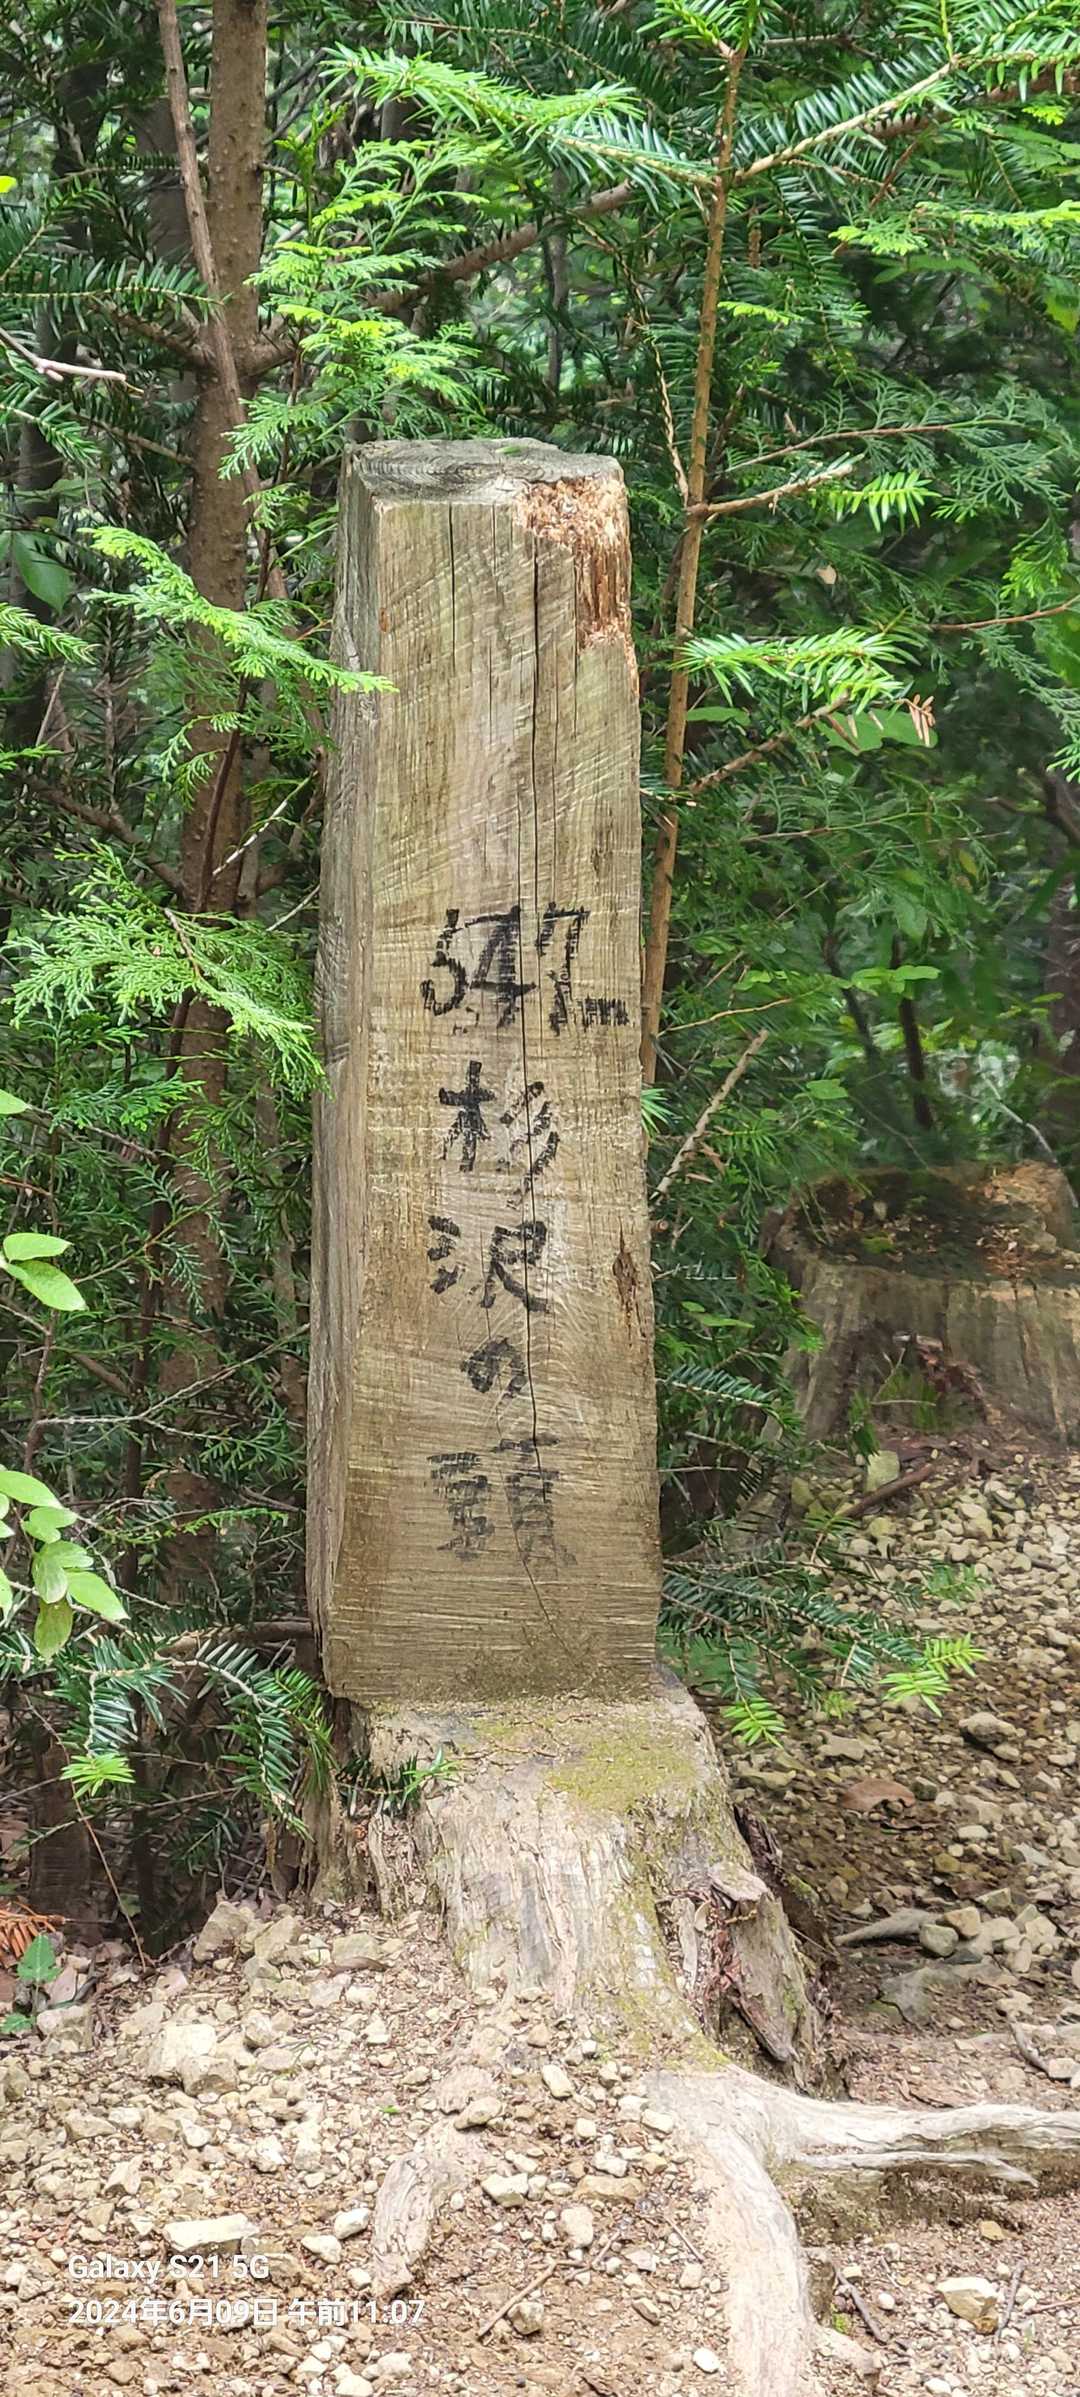 547m
杉沢の頭
Galaxy S21 5G
2024年6月09日 午前11:07